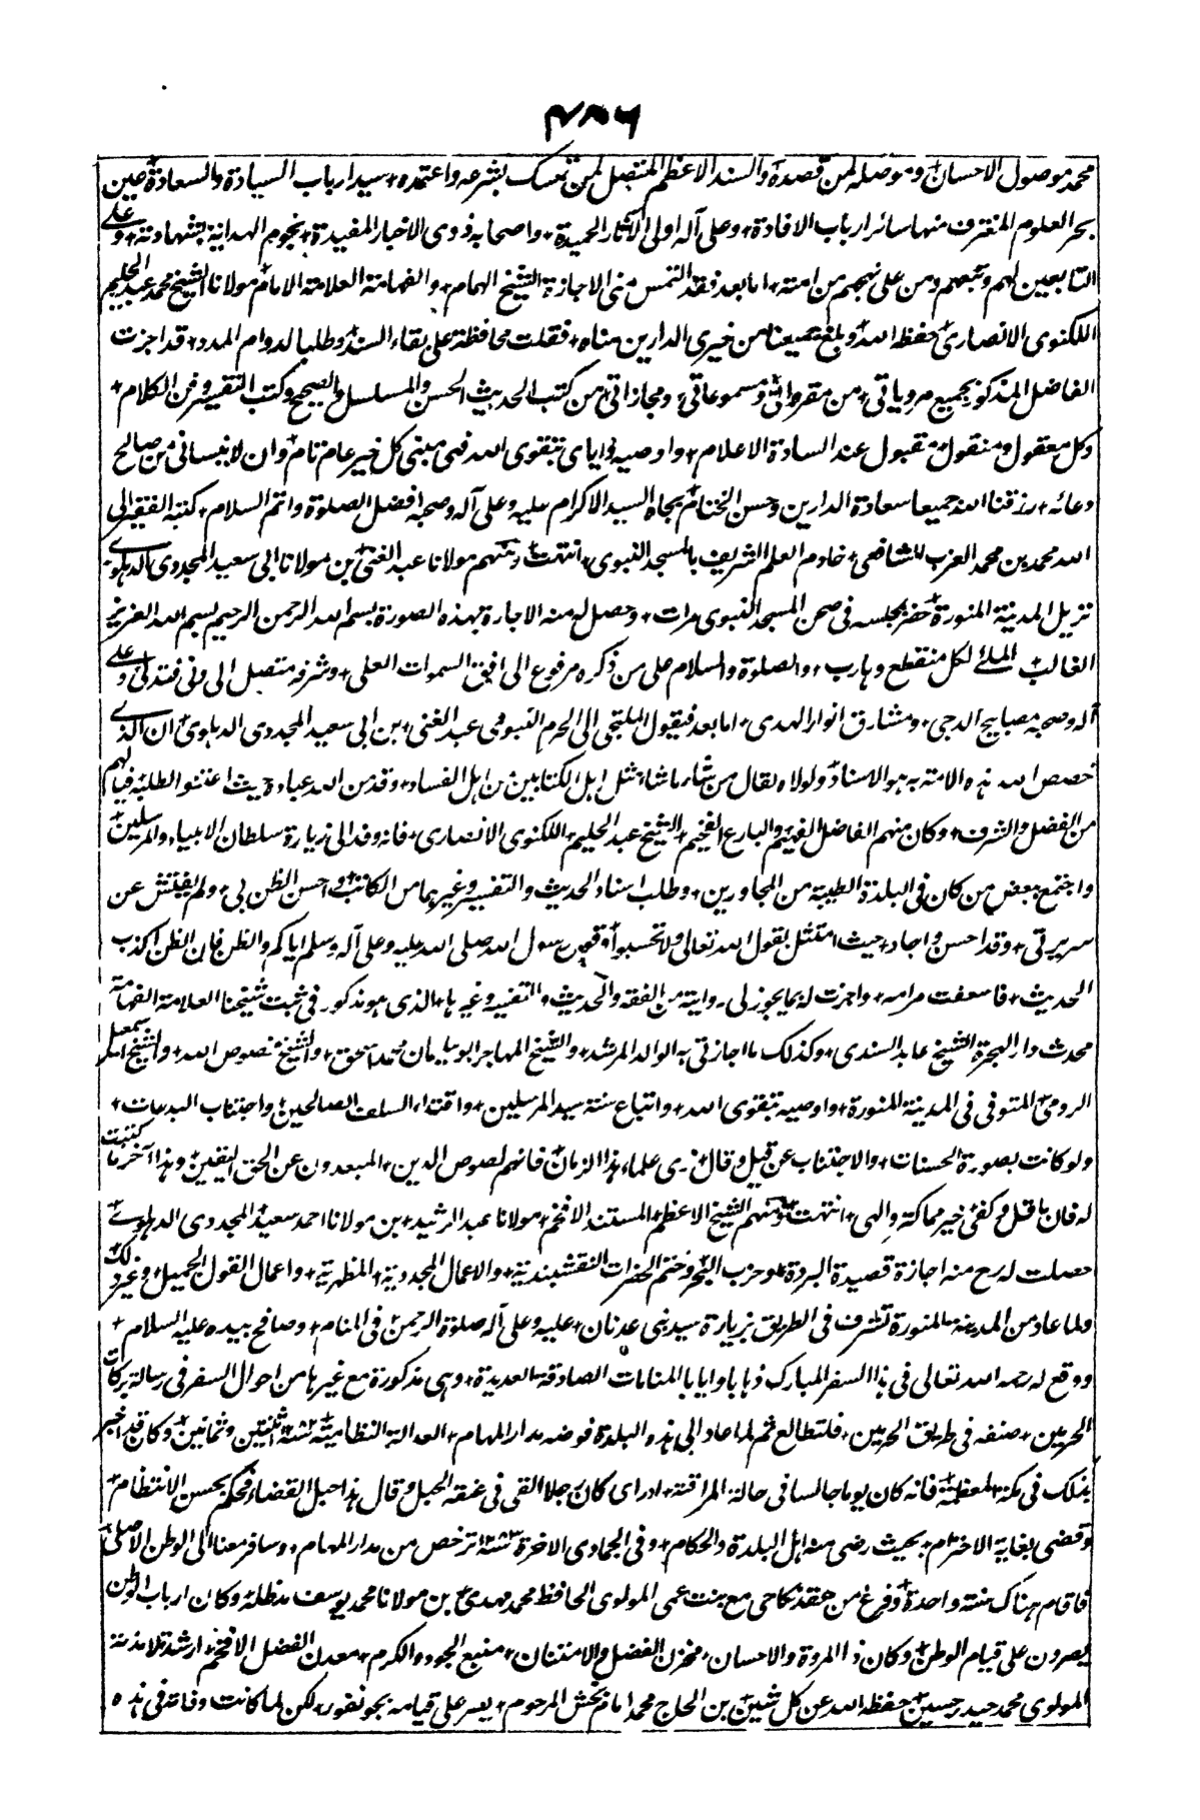 ۷۸۶
محمد موصول الاحسان وموصله لمن قصده والسند الاعظم المتصل لمن تمسك بشرعه واعتمده سيد ارباب السيادة والسعادة عين
بحر العلوم المغترف منها سائر ارباب الافادة وعلى آله اولى الآثار الحميدة واصحابه ذوى الاخبار المفيدة نجوم الهداية بشهادته وعلى
التابعين لهم وتبعهم ومن على نهجهم من امته اما بعد فقد التمس منى الاجازة الشيخ الهمام والفهامة العلامة الامام مولانا الشيخ محمد عبد الحليم
اللكنوى الانصارى حفظه الله وبلغ جميعنا من خيرى الدارين مناه فقلت محافظة على بقاء السند وطلبا لدوام المدد قد اجزت
الفاضل المذكور بجميع مروياتى من مقرواتى ومسموعاتى ومجازاتى من كتب الحديث الحسن والمسلسل والصحيح وكتب التفسير وفن الكلام
وكل معقول ومنقول مقبول عند السادة الاعلام واوصيه واياى بتقوى الله فهى مبنى كل خير عام تام وان لا ينسانى من صالح
دعائه رزقنا الله جميعا سعادة الدارين وحسن الختام بجاه السيد الاكرام عليه وعلى آله وصحبه افضل الصلوة واتم السلام كتبه الفقير الى
الله محمد بن محمد العزب الشافعى خادم العلم الشريف بالمسجد النبوى انتهت ومنهم مولانا عبد الغنى بن مولانا ابى سعيد المجددى الدهلوى
نزيل المدينة المنورة حضر بجلسه فى صحن المسجد النبوى مرات وحصل له منه الاجازة بهذه الصورة بسم الله الرحمن الرحيم بسم الله العزيز
الغالب الملجأ لكل منقطع وهارب والصلوة والسلام على من ذكره مرفوع الى افق السموات العلى وشرفه متصل الى دنى فتدلى وعلى
آله وصحبه مصابيح الدجى ومشارق انوار الهدى اما بعد فيقول الملتجى الى الحرم النبوى عبد الغنى بن ابى سعيد المجددى الدهلوى ان الذى
خصص الله هذه الامة به هو الاسناد ولولاه لقال من شاء ما شاء مثل اهل الكتابين من اهل الفساد وقد من الله عباده حيث اغتنو الطلبه فيالهم
من الفضل والشرف وكان منهم الفاضل الفهيم والبارع الفخيم الشيخ عبد الحليم اللكنوى الانصارى فانه وفد الى زيارة سلطان الانبياء والمرسلين
واجتمع ببعض من كان فى البلدة الطيبة من المجاورين وطلب اسناد الحديث والتفسير وغيرهما من الكاتب واحسن الظن بى ولم يفتش عن
سريرتى وقد احسن واجاد حيث امتثل بقول الله تعالى ولا تحسبوا وقول رسول الله صلى الله عليه وعلى آله وسلم اياكم والظن فان الظن اكذب
الحديث فاسعفت مرامه واجزت له بما يجوز لى رواية من الفقه والحديث والتفسير وغيرها الذى هو مذكور فى ثبت شيخنا العلامة الفهامة
محدث دار الهجرة الشيخ عابد السندى وكذلك ما اجازنى به الوالد المرشد والشيخ المهاجر ابو سليمان محمد اسحق والشيخ مخصوص الله والشيخ اسمعيل
الرومى المتوفى فى المدينة المنورة واوصيه بتقوى الله واتباع سنة سيد المرسلين واقتداء السلف الصالحين واجتناب البدعات
ولو كانت بصورة الحسنات والاجتناب عن قيل وقال زى علماء هذا الزمان فانهم لصوص الدين المبعدون عن الحق اليقين وهذا آخر ما كتبت
له فان ما قل وكفى خير مما كثر والهى انتهت ومنهم الشيخ الاعظم المستند الافخم مولانا عبد الرشيد بن مولانا احمد سعيد المجددى الدهلوى
حصلت له رح منه اجازة قصيدة البردة وحزب البحر وختم الحضرات النقشبندية والاعمال المجددية المظهرية واعمال القول الجميل وغير ذلك
ولما عاد من المدينة المنورة تشرف فى الطريق بزيارة سيد بنى عدنان عليه وعلى آله صلوة الرحمن فى المنام وصافح بيده عليه السلام
ووقع له رحمه الله تعالى فى هذا السفر المبارك ذهابا وايابا المنامات الصادقة العديدة وهى مذكورة مع غيرها من احوال السفر فى رسالة بركات
الحرمين صنفه فى طريق الحرمين فلتطالع ثم لما عاد الى هذه البلدة فوضه مدار المهام العدالة النظامية سنة ١٢٨٢ اثنتين وثمانين وكان قد اخبر
بذلك فى مكة المعظمة فانه كان يوما جالسا فى حالة المراقبة اذ راى كان رجلا القى فى عنقه الحبل وقال هذا حبل القضاء فحكم بحسن الانتظام
وقضى بغاية الاحترام بحيث رضى منه اهل البلدة والحكام وفى الجمادى الاخرة سنة ١٢٨٣ ترخص من مدار المهام وسافر معنا الى الوطن الاصلى
فاقام هناك سنة واحدة وفرغ من عقد نكاحى مع بنت عمى المولوى الحافظ محمد مهدى بن مولانا محمد يوسف مد ظله وكان ارباب الوطن
يصرون على قيام الوطن وكان ذا المروة والاحسان مخزن الفضل والامتنان منبع الجود والكرم معدن الفضل الافخم ارشد تلامذته
المولوى محمد حيدر حسين حفظه الله عن كل شين بن الحاج محمد امام بخش المرحوم يسر على قيامه بجونفور لكن لما كانت وفاته فى هذه